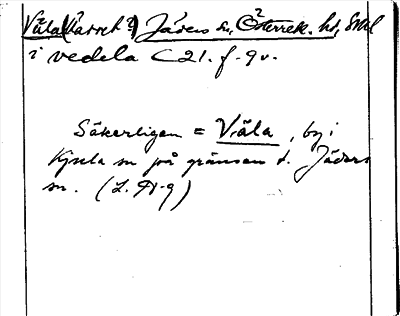 Väla (Varret?) Jäders sn, Österrek. hd, Srml
i vedela C 21. f. 9 v.
Säkerligen = Väla, by i
Kjula sn på gränsen t. Jäders
sn. (L. H-g)